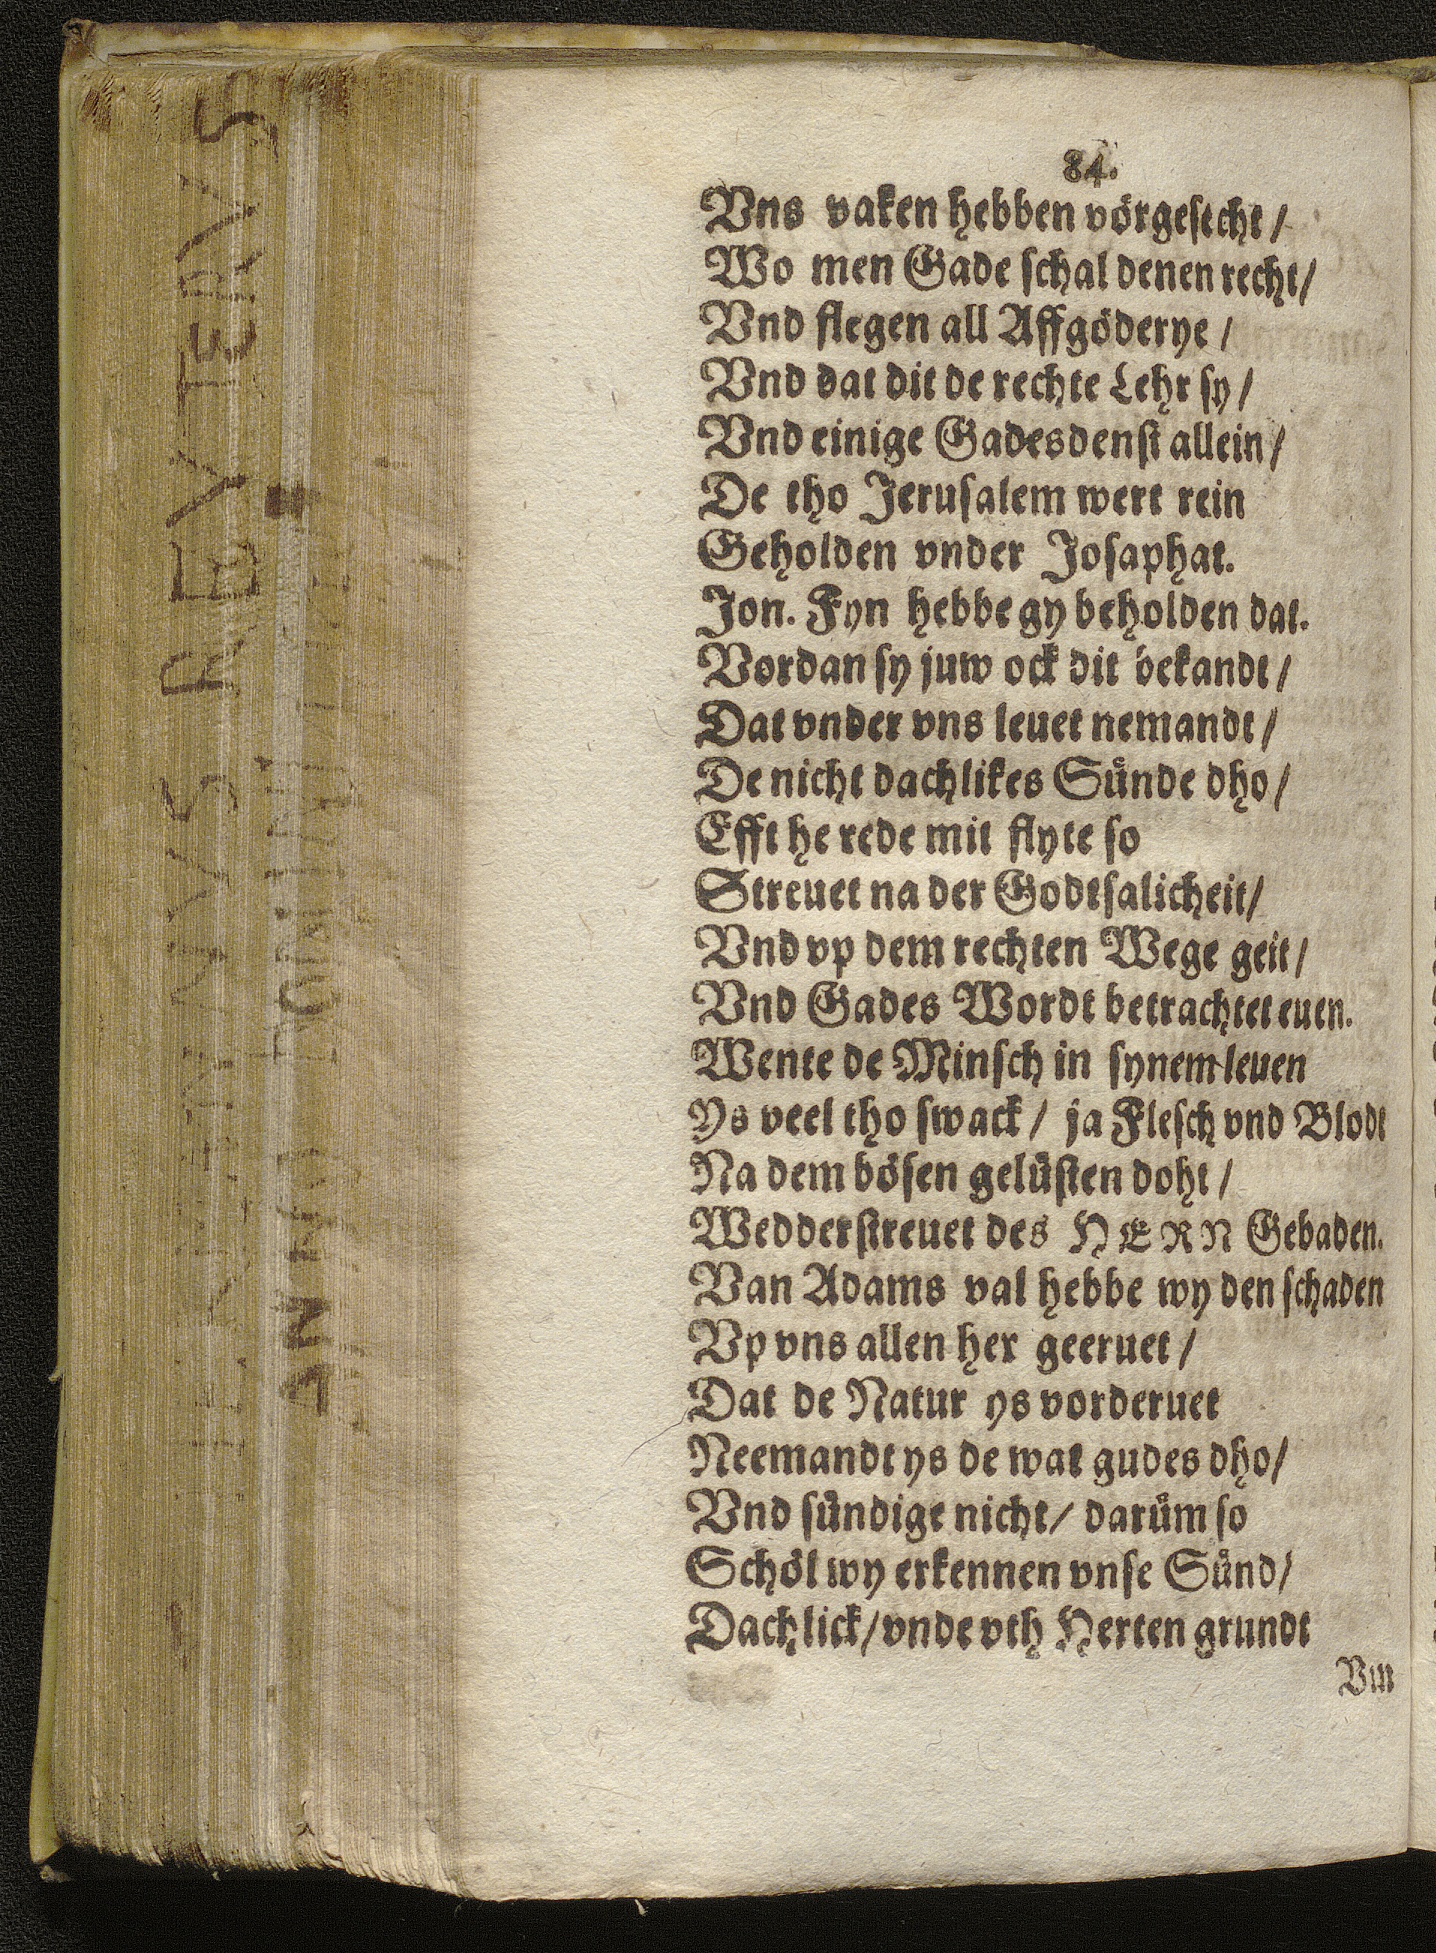 84.
Vns vaken hebben vörgesecht /
Wo men Gade schal denen recht /
Vnd flegen all Affgöderye /
Vnd dat dit de rechte Lehr sy /
Vnd einige Gadesdenst allein /
De tho Jerusalem wert rein
Geholden vnder Josaphat.
Jon. Fyn hebbe gy beholden dat.
Vordan sy juw ock dit bekandt /
Dat vnder vns leuet nemandt /
De nicht dachlikes Sünde dho /
Efft he rede mit flyte so
Streuet na der Godtsalicheit /
Vnd vp dem rechten Wege geit /
Vnd Gades Wordt betrachtet euen.
Wente de Minsch in synem leuen
Ys veel tho swack / ja Flesch vnd Blodt
Na dem bösen gelüsten doht /
Wedderstreuet des HERN Gebaden.
Van Adams val hebbe wy den schaden
Vp vns allen her geeruet /
Dat de Natur ys vorderuet
Neemandt ys de wat gudes dho /
Vnd sündige nicht / darüm so
Schöl wy erkennen vnse Sünd /
Dachlick / vnde vth Herten grundt
Vm